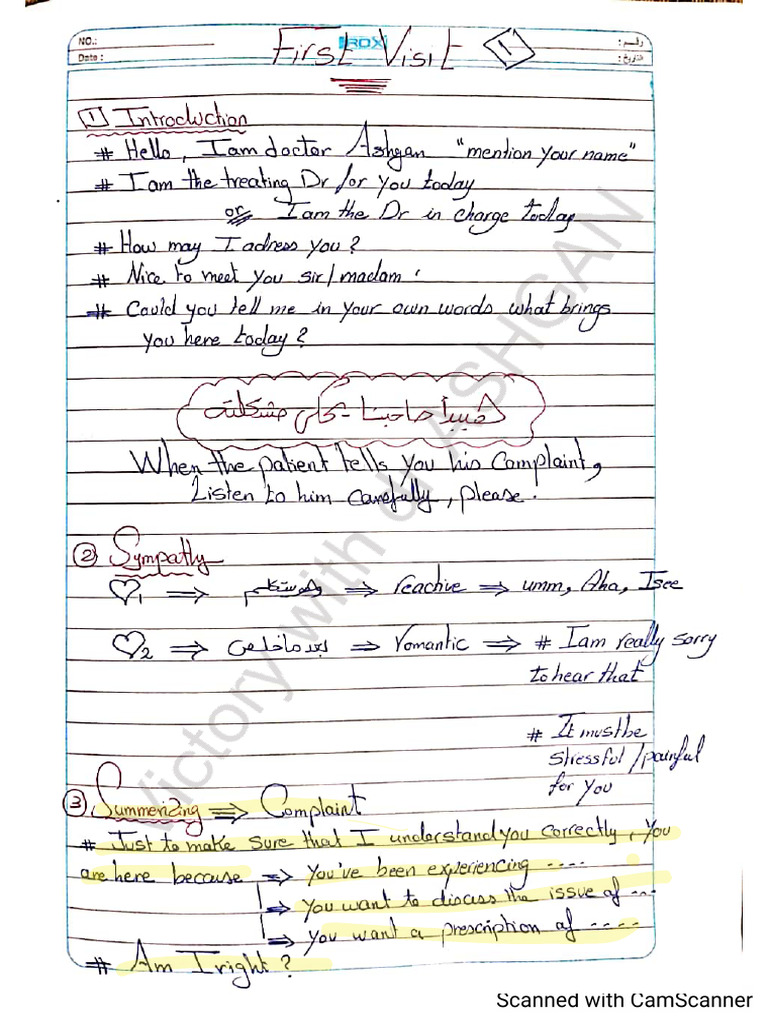 NO.:
Date :
ROX
رقم :
التاريخ :
First Visit 1
1 Introduction
# Hello, I am doctor Ashgan "mention your name"
# I am the treating Dr for you today
or I am the Dr in charge today
# How may I adress you?
# Nice to meet you sir/madam
# Could you tell me in your own words what brings
you here today?
هيبدأ صاحبنا يحكي مشكلته
When the patient tells you his Complaint,
Listen to him carefully, please.
2 Sympathy
♡1 ⇒ وهو بيتكلم ⇒ reactive ⇒ umm, Aha, I see
♡2 ⇒ بعد ما خلص ⇒ Romantic ⇒ # I am really sorry
to hear that
# It must be
stressful/painful
for you
3 Summerizing ⇒ Complaint
# Just to make sure that I understand you correctly, you
are here because ⇒ you've been experiencing ....
⇒ you want to discuss the issue of ...
⇒ you want a prescription of .....
# Am I right?
Victory with dr ASHGAN
Scanned with CamScanner